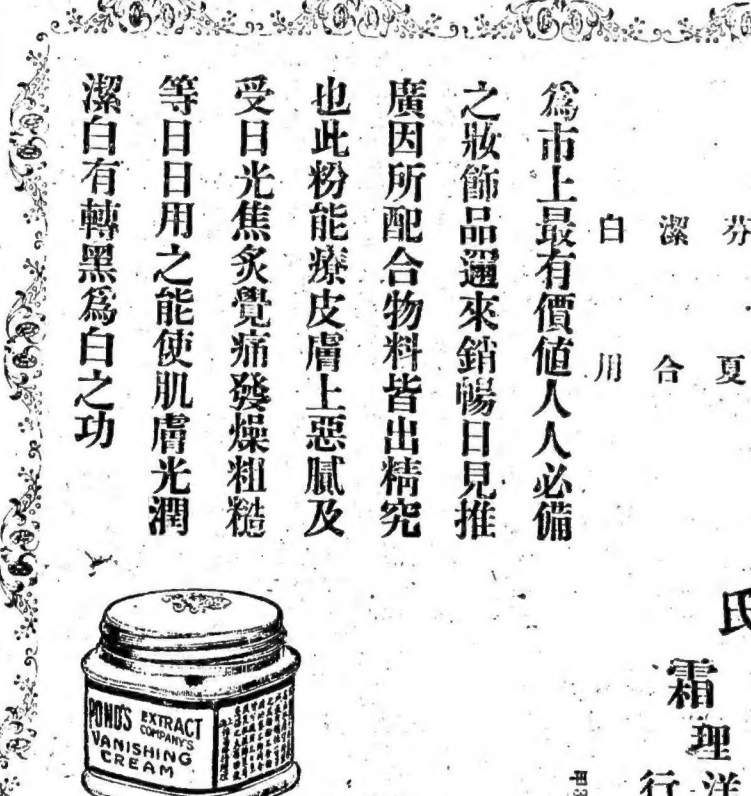 芬 夏
潔 合
白 用
為市上最有價値人人必備
之妝飾品邇來銷暢日見推
廣因所配合物料皆出精究
也此粉能療皮膚上惡膩及
受日光焦炙覺痛發燥粗糙
等日日用之能使肌膚光潤
潔白有轉黑為白之功
氏
霜
理洋
行
POND'S EXTRACT
COMPANY'S
VANISHING
CREAM